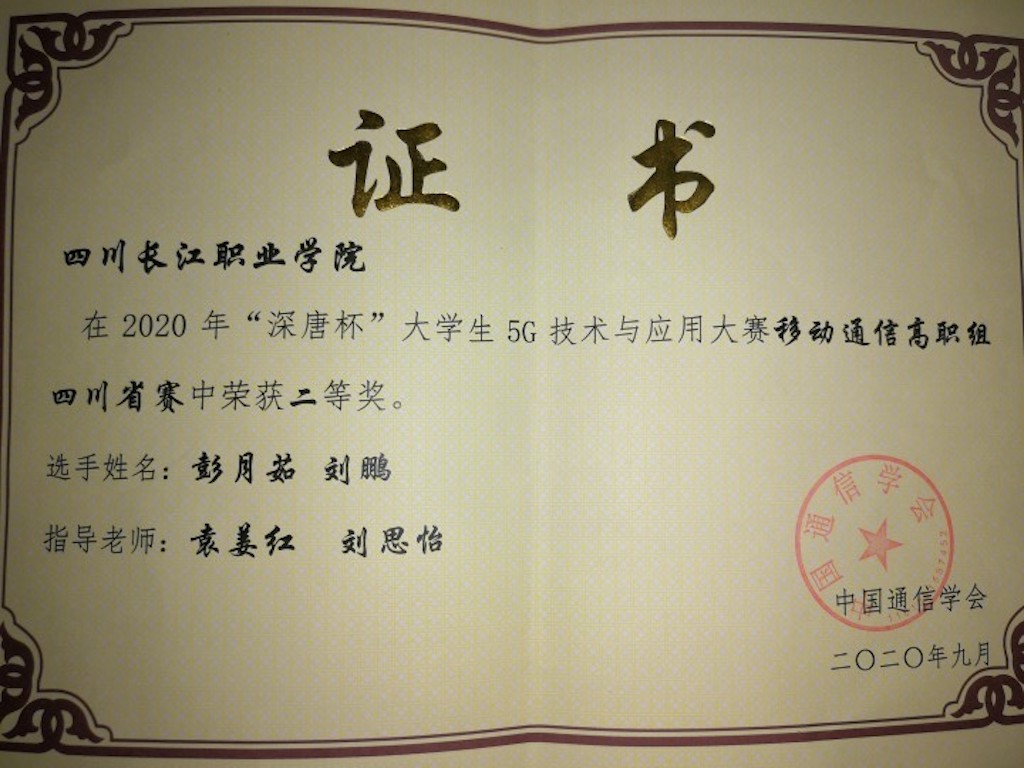 证书
四川长江职业学院
在 2020 年“深唐杯”大学生 5G 技术与应用大赛移动通信高职组
四川省赛中荣获二等奖。
选手姓名：彭月茹 刘鹏
指导老师：袁姜红 刘思怡
中国通信学会
中国通信学会
二〇二〇年九月